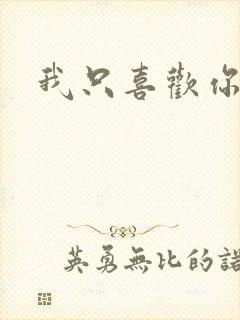 我只喜歡你
英勇無比的諾